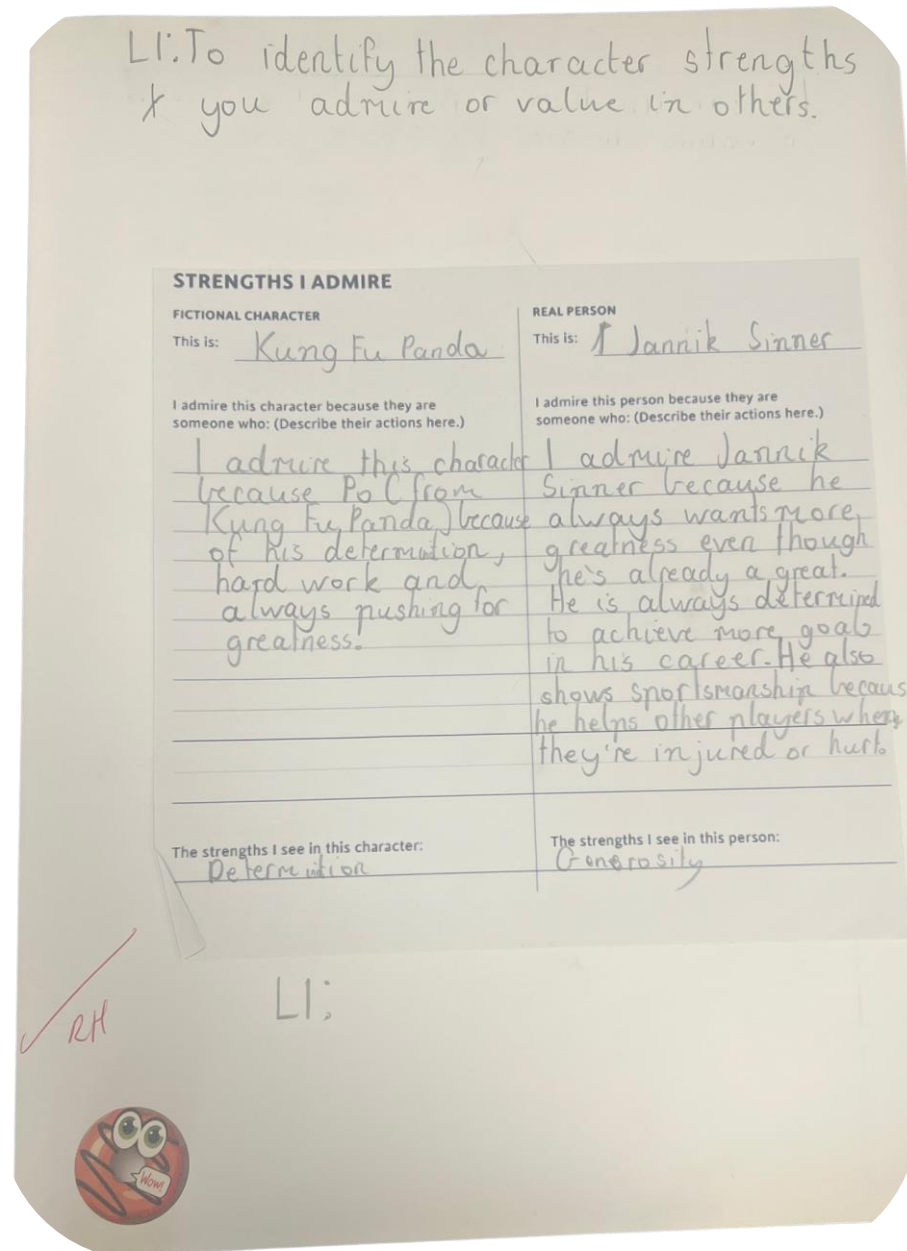 LI: To identify the character strengths
you admire or value in others.
STRENGTHS I ADMIRE
FICTIONAL CHARACTER
This is: Kung Fu Panda
I admire this character because they are
someone who: (Describe their actions here.)
I admire this character
because Po (from
Kung Fu Panda) because
of his determution,
hard work and
always pushing for
greatness.
The strengths I see in this character:
Determition
REAL PERSON
This is: Jannik Sinner
I admire this person because they are
someone who: (Describe their actions here.)
I admire Jannik
Sinner because he
always wants more
greatness even though
he's already a great.
He is always determined
to achieve more goals
in his career. He also
shows sportsmanship becaus
he helps other players when
they're injured or hurt.
The strengths I see in this person:
Generosity
LI:
RH
Wow!